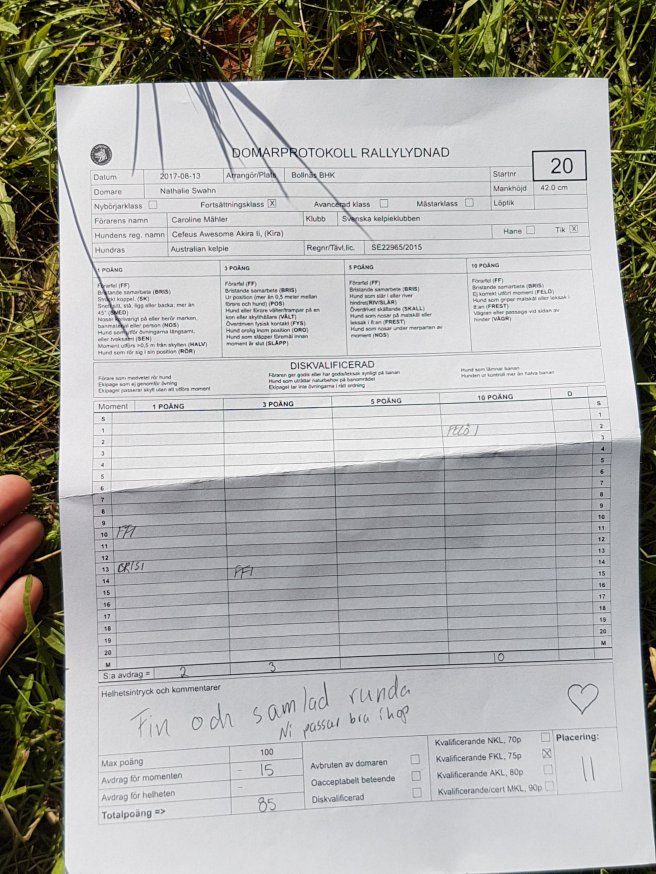 DOMARPROTOKOLL RALLYLYDNAD
20
Datum 2017-08-13 Arrangör/Plats Bollnäs BHK Startnr
Domare Nathalie Swahn Mankhöjd 42.0 cm
Nybörjarklass Fortsättningsklass X Avancerad klass Mästarklass Löptik
Förarens namn Caroline Mähler Klubb Svenska kelpieklubben
Hundens reg. namn Cefeus Awesome Akira Ii, (Kira) Hane Tik X
Hundras Australian kelpie Regnr/Tävl.lic. SE22965/2015
1 POÄNG
Förarfel (FF)
Bristande samarbete (BRIS)
Sträckt koppel. (SK)
Snett sitt, stå, ligg eller backa; mer än
45° (SNED)
Nosar flyktigt på eller berör marken,
banmaterial eller person (NOS)
Hund som utför övningarna långsamt,
eller tveksamt (SEN)
Moment utförs >0,5 m från skylten (HALV)
Hund som rör sig i sin position (RÖR)
3 POÄNG
Förarfel (FF)
Bristande samarbete (BRIS)
Ur position (mer än 0,5 meter mellan
förare och hund) (POS)
Hund eller förare välter/trampar på en
kon eller skylthållare (VÄLT)
Överdriven fysisk kontakt (FYS)
Hund orolig inom position (ORO)
Hund som släpper föremål innan
moment är slut (SLÄPP)
5 POÄNG
Förarfel (FF)
Bristande samarbete (BRIS)
Hund som slår i eller river
hindret(RIV/SLÅR)
Överdrivet skällande (SKALL)
Hund som nosar på matskål eller
leksak i 8:an (FREST)
Hund som nosar under merparten av
moment (NOS)
10 POÄNG
Förarfel (FF)
Bristande samarbete (BRIS)
Ej korrekt utfört moment (FELÖ)
Hund som griper matskål eller leksak i
8:an (FREST)
Vägran eller passage vid sidan av
hinder (VÄGR)
DISKVALIFICERAD
Förare som medveten rör hund
Ekipage som ej genomför övning
Ekipaget passerar skylt utan att utföra moment
Föraren ger godis eller har godis/leksak synligt på banan
Hund som uträttar naturbehov på banområdet
Ekipaget tar inte övningarna i rätt ordning
Hund som lämnar banan
Hunden ur kontroll mer än halva banan
Moment 1 POÄNG 3 POÄNG 5 POÄNG 10 POÄNG D
S S
1 1
2 FELÖ 1 2
3 3
4 4
5 5
6 6
7 7
8 8
9 9
10 FF1 10
11 11
12 12
13 BRIS1 13
14 FF1 14
15 15
16 16
17 17
18 18
19 19
20 20
M M
S:a avdrag = 2 3 10
Helhetsintryck och kommentarer
Fin och samlad runda
Ni passar bra ihop
Max poäng 100
Avdrag för momenten 15
Avdrag för helheten -
Totalpoäng => 85
Avbruten av domaren
Oacceptabelt beteende
Diskvalificerad
Kvalificerande NKL, 70p
Kvalificerande FKL, 75p X
Kvalificerande AKL, 80p
Kvalificerande/cert MKL, 90p
Placering:
11